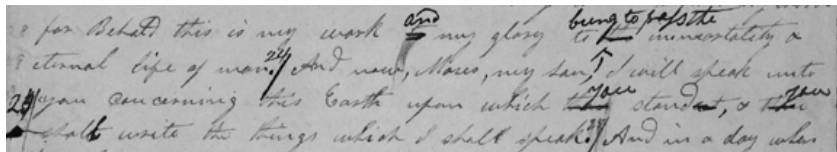 for Behold this is my work and my glory to bring to pass the immortality &
eternal life of man. 24 And now, Moses, my son, I will speak unto
you concerning this Earth upon which you stand, & you
shalt write the things which I shall speak. 25 And in a day when